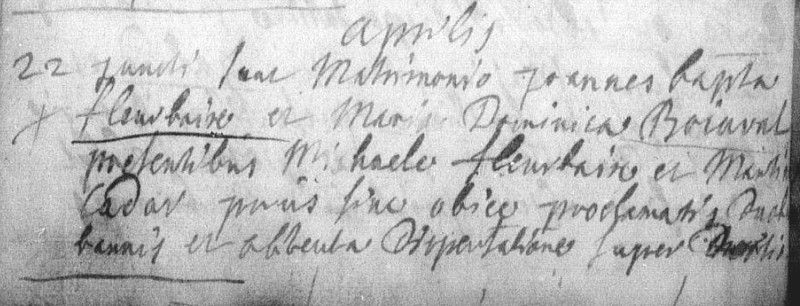 aprilis
22 juncti sunt Matrimonio joannes bapta
fleurbaix et Maria Dominica Boiaval
presentibus Michaele fleurbaix et Marti
Cador prius sine obice proclamatis duob
bannis et obtenta Dispensatione super